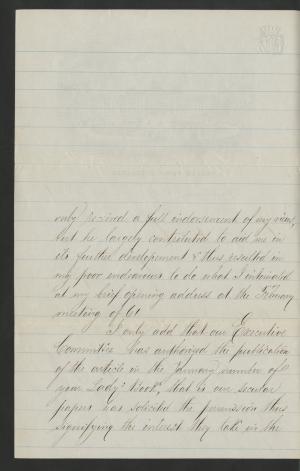 only received a full indorsement of my views,
but he largely contributed to aid me in
its further development & thus resulted in
my poor endeavours to do what I intimated
at my brief opening address at the February
meeting of 61
I only add that our Executive
Committee has authorized the publication
of the article in the January number of
your Lady's Book, that is our secular
papers has solicited the permission thus
signifying the interest they take in the